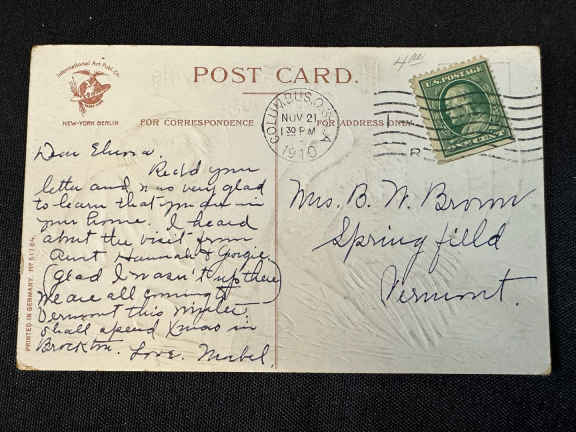 International Art Publ. Co.
NEW-YORK BERLIN
POST CARD.
FOR CORRESPONDENCE
FOR ADDRESS ONLY
4.00
COLUMBUS, O.
NOV 21
1 30 PM
1910
U.S. POSTAGE
ONE CENT
Dear Elmina.
Rec'd your
letter and was very glad
to learn that you are in
your home. I heard
about the visit from
Aunt Hannah & Georgie.
(glad I wasn't up there)
We are all coming to
Vermont this winter.
Shall spend Xmas in
Brockton. Love. Mabel.
Mrs. B. W. Brown
Springfield
Vermont.
PRINTED IN GERMANY.